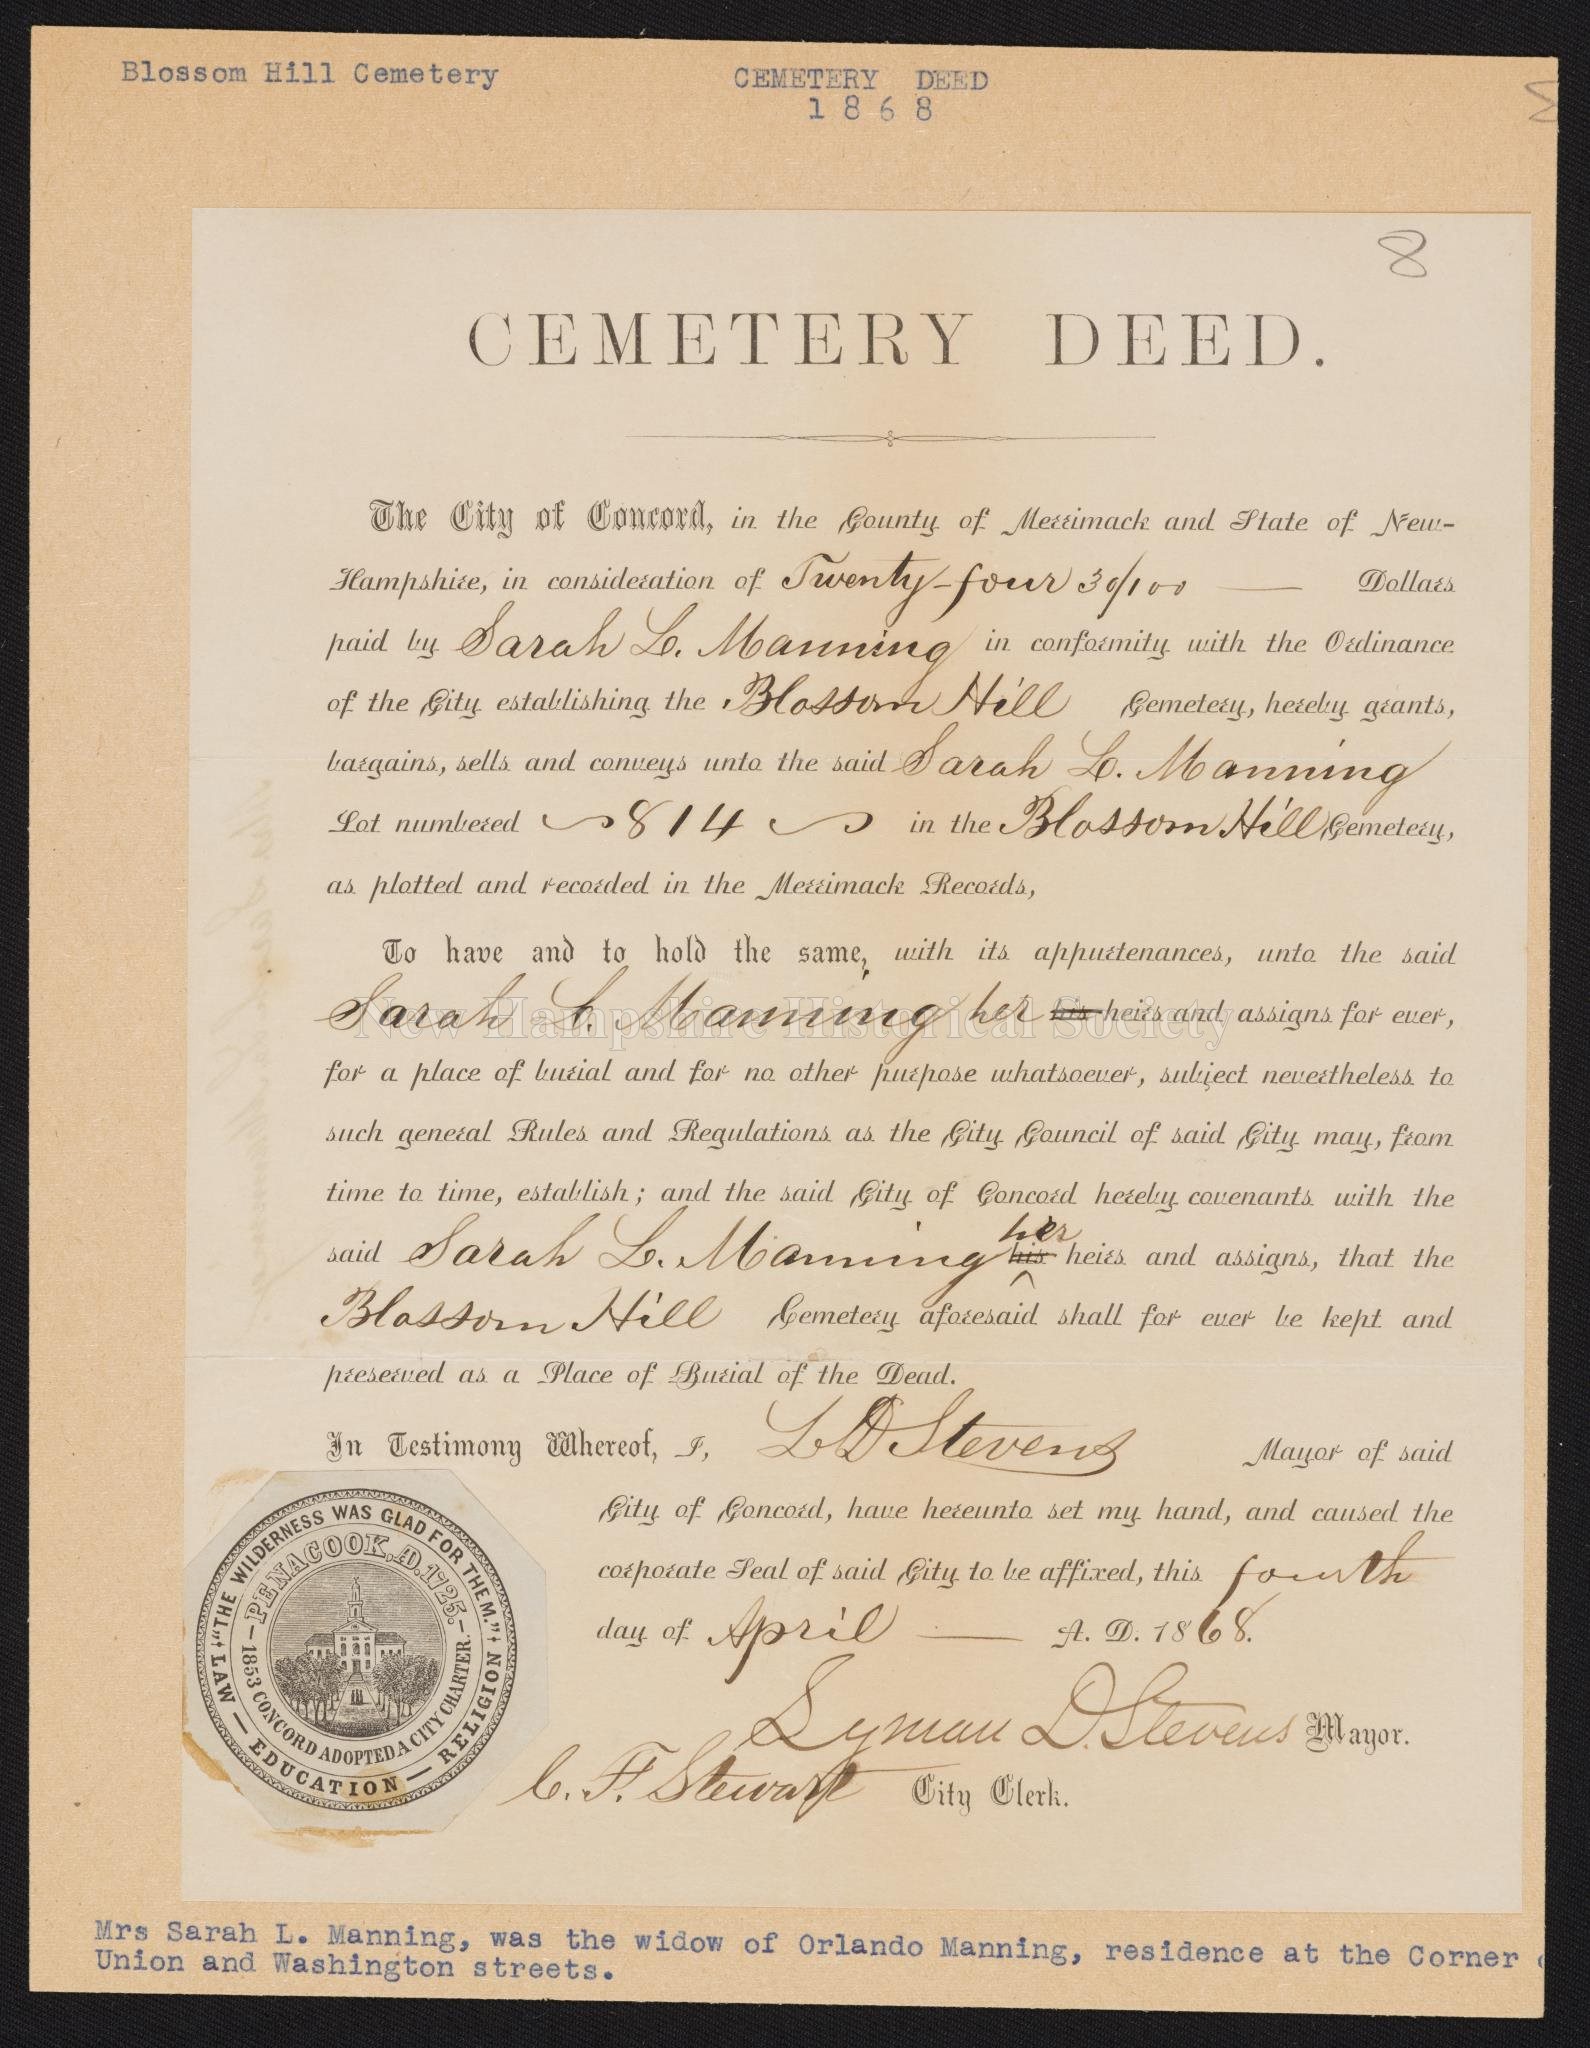 Blossom Hill Cemetery
CEMETERY DEED
1868
8
CEMETERY DEED.
The City of Concord, in the County of Merrimack and State of New-
Hampshire, in consideration of Twenty-four 30/100 — Dollars
paid by Sarah L. Manning in conformity with the Ordinance
of the City establishing the Blossom Hill Cemetery, hereby grants,
bargains, sells and conveys unto the said Sarah L. Manning
Lot numbered 814 in the Blossom Hill Cemetery,
as plotted and recorded in the Merrimack Records,
To have and to hold the same, with its appurtenances, unto the said
Sarah L. Manning her his heirs and assigns for ever,
New Hampshire Historical Society
for a place of burial and for no other purpose whatsoever, subject nevertheless to
such general Rules and Regulations as the City Council of said City may, from
time to time, establish; and the said City of Concord hereby covenants with the
said Sarah L. Manning her his heirs and assigns, that the
Blossom Hill Cemetery aforesaid shall for ever be kept and
preserved as a Place of Burial of the Dead.
In Testimony Whereof, I, L D Stevens Mayor of said
City of Concord, have hereunto set my hand, and caused the
corporate Seal of said City to be affixed, this fourth
day of April — A. D. 1868.
Lyman D. Stevens Mayor.
C. F. Stewart City Clerk.
"THE WILDERNESS WAS GLAD FOR THEM."
LAW — EDUCATION — RELIGION
PENACOOK, A.D. 1725.
1853 CONCORD ADOPTED A CITY CHARTER.
Mrs Sarah L. Manning, was the widow of Orlando Manning, residence at the Corner
Union and Washington streets.